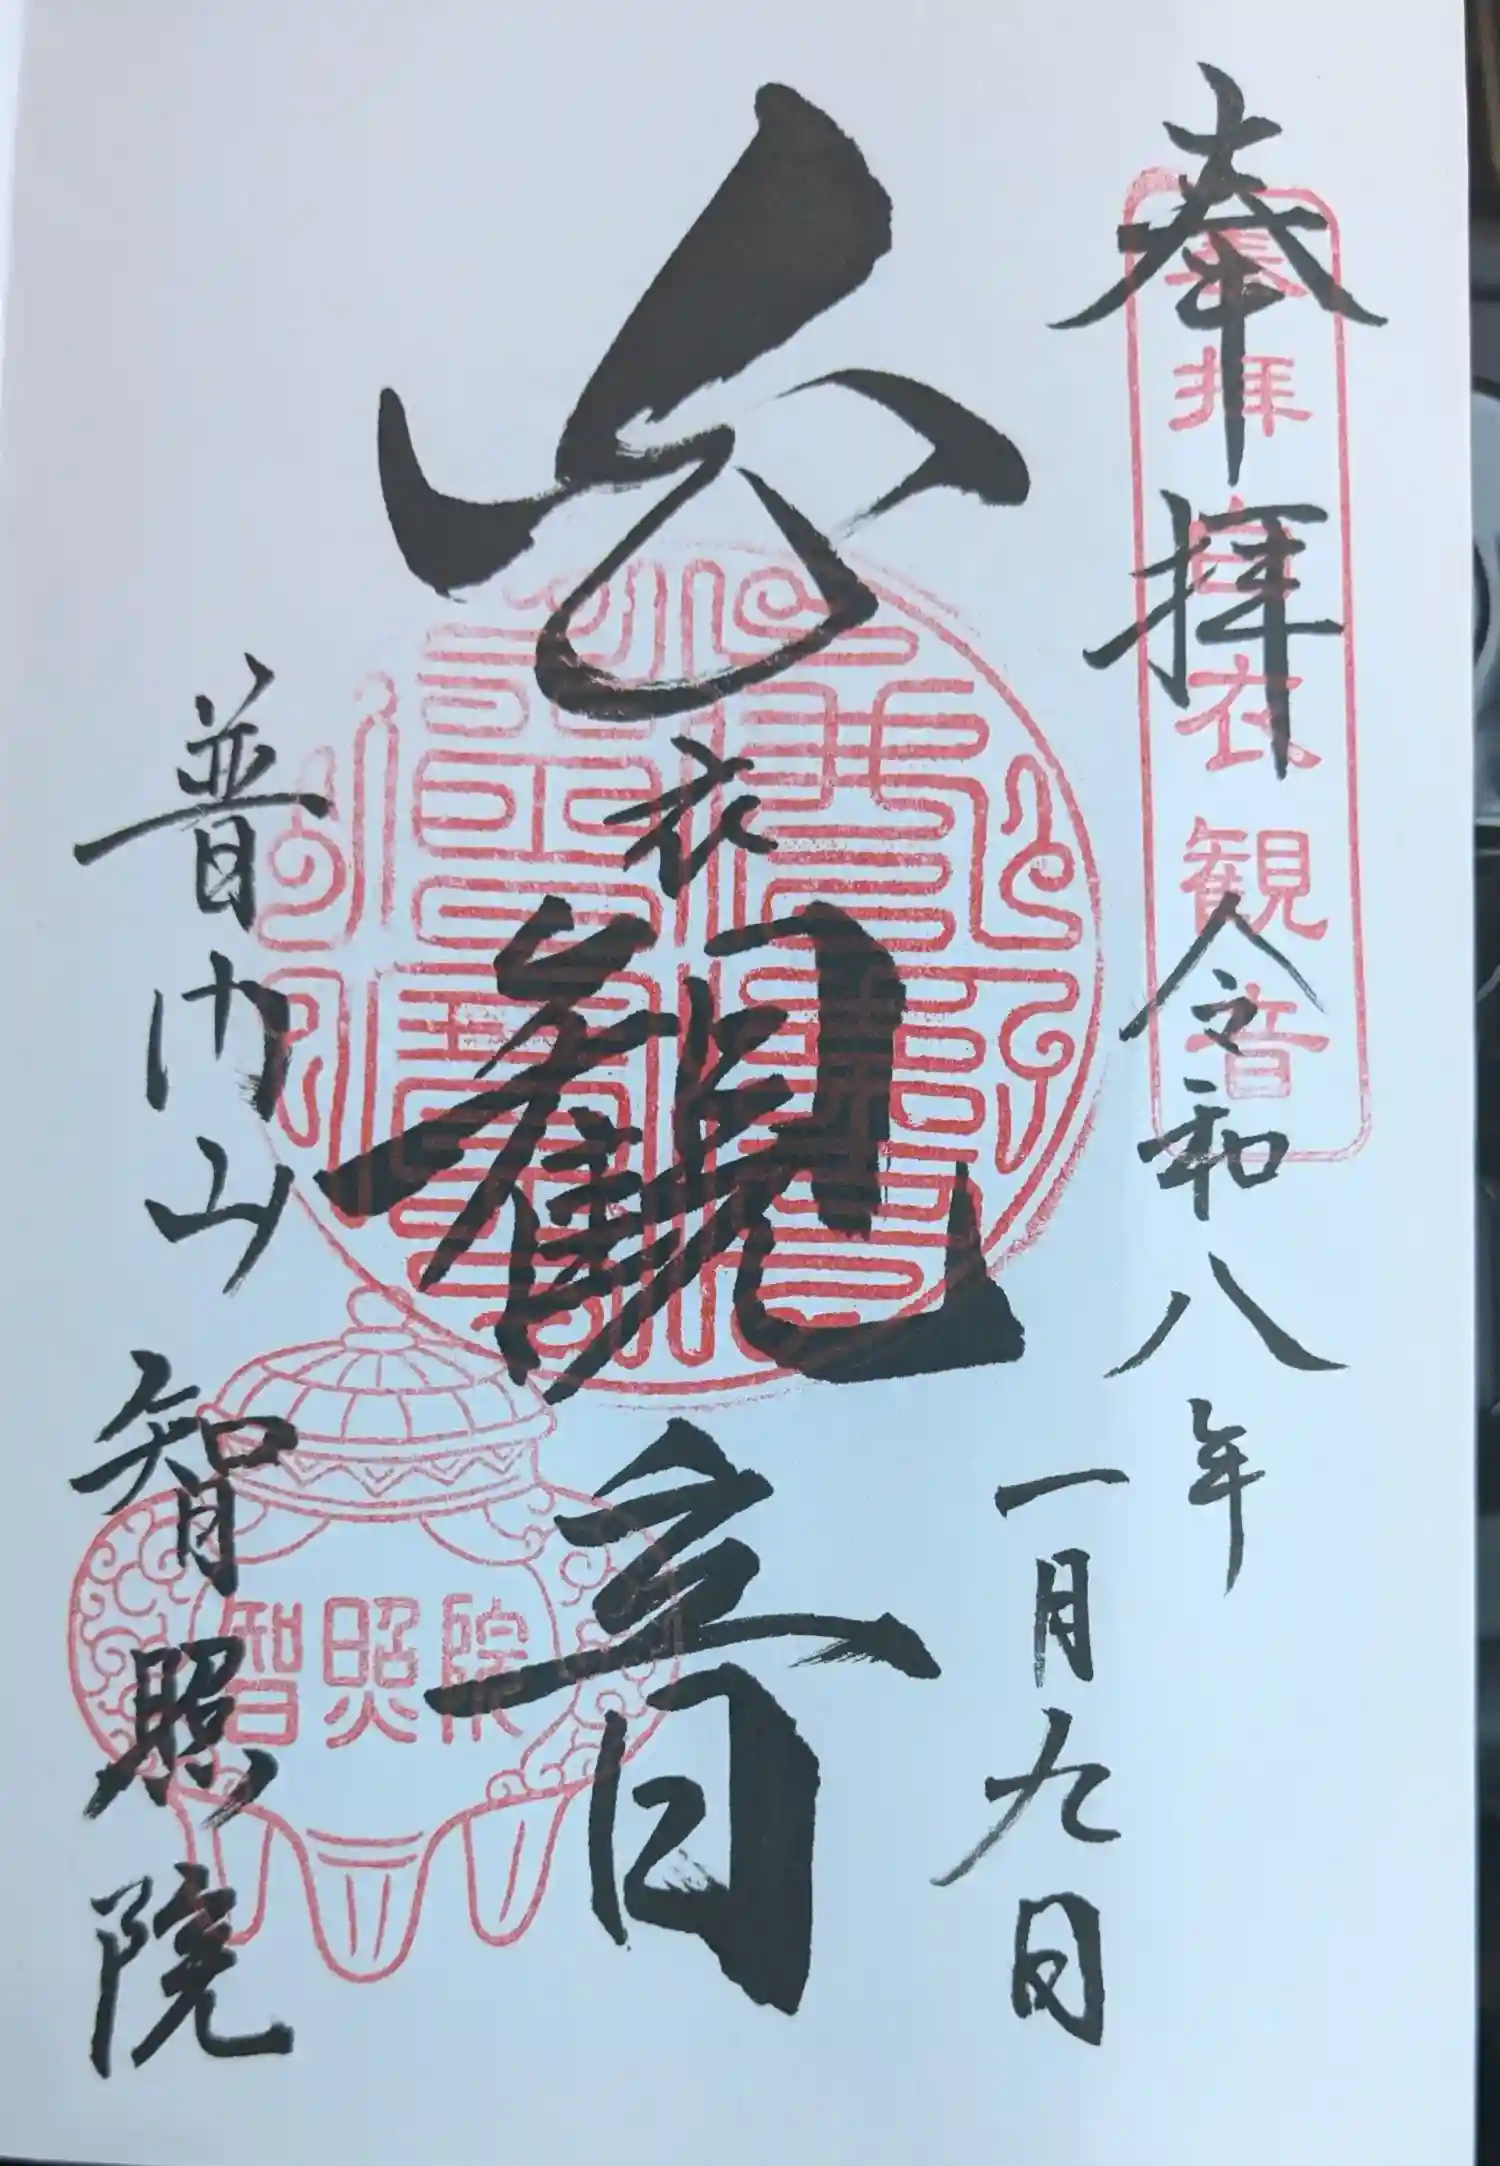 奉拝 令和八年
奉拝 白衣観音
一月九日
白衣観音
普門山 智照院
智照院